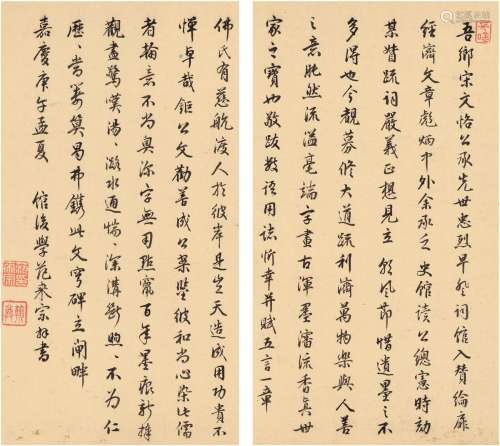 吾鄉宋文恪公承先世忠烈早登詞館入贊綸扉
經濟文章彪炳中外余承乏史館讀公總憲時劾
某督疏詞嚴義正想見立朝風節惜遺墨之不
多得也今觀募修大道疏利濟萬物樂與人善
之意肫然流溢毫端字畫古渾墨瀋流香真世
家之寶也敬跋數語用誌忻幸并賦五言一章
佛氏有慈航渡人於彼岸是豈天造成用功貴不
憚卓哉鉅公文勸善成公案堅彼和尚心染此儒
者翰意不尚奥深字無用點竄百年墨痕新捧
觀盡驚漢湯湯水通惴惴深溝斷煦煦不為仁
歷歷曷弗鐫此文穹碑立閘畔
嘉慶庚午孟夏 館後學范來宗拜書